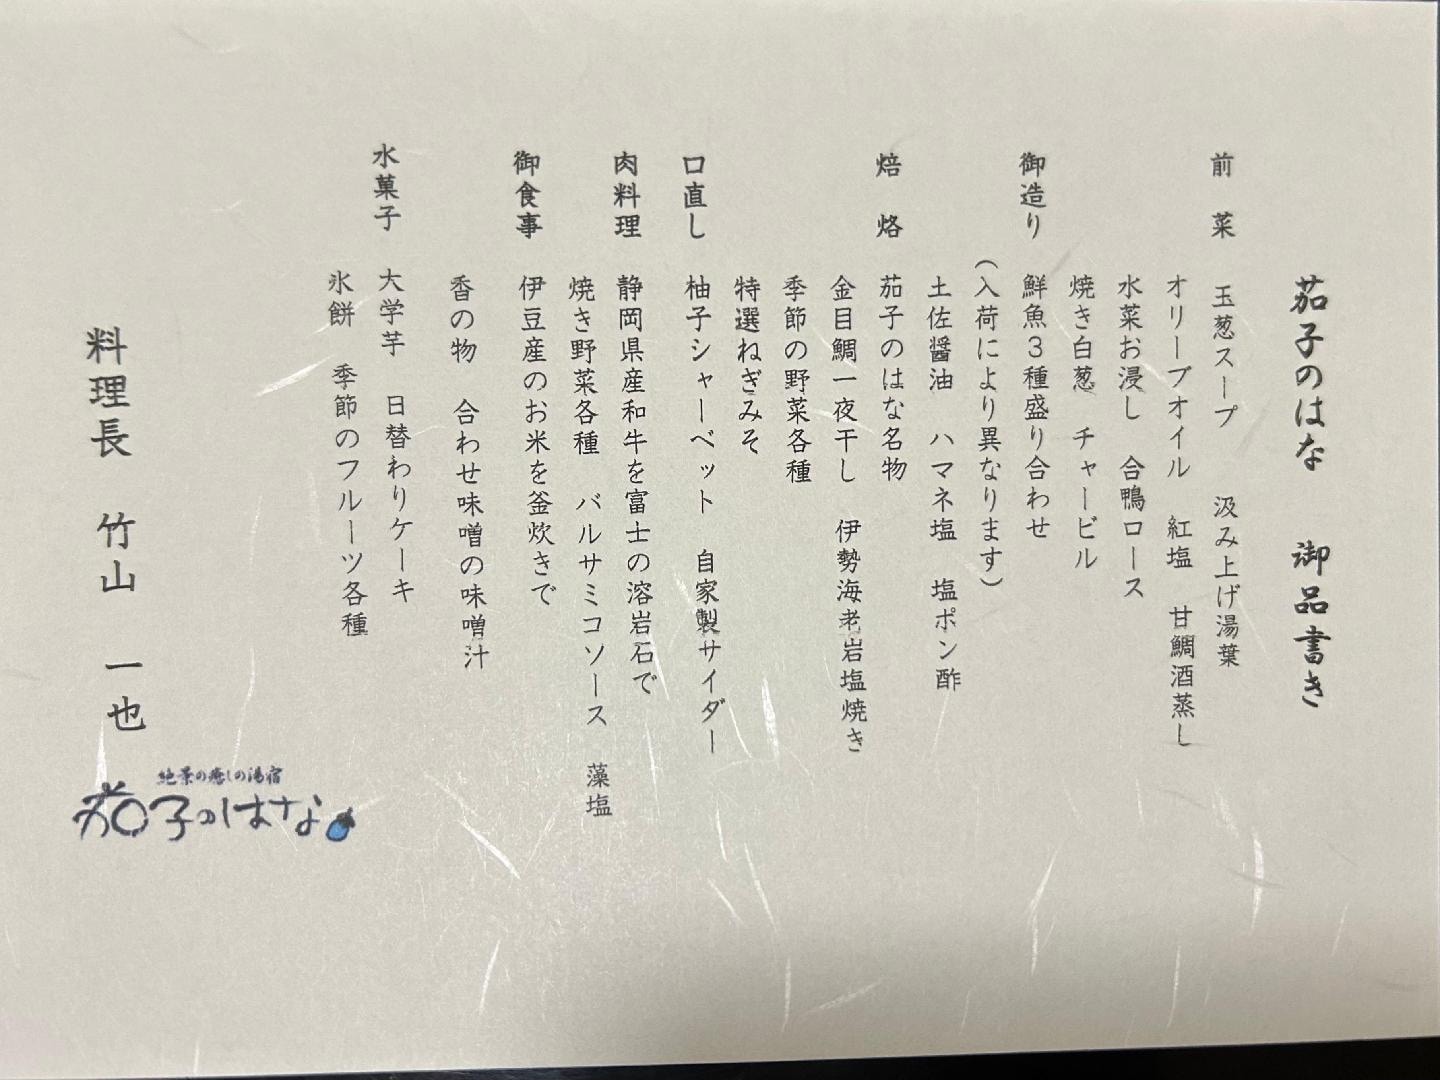 茄子のはな　御品書き
前　菜　玉葱スープ　汲み上げ湯葉
オリーブオイル　紅塩　甘鯛酒蒸し
水菜お浸し　合鴨ロース
焼き白葱　チャービル
御造り　鮮魚３種盛り合わせ
（入荷により異なります）
土佐醤油　ハマネ塩　塩ポン酢
焙　烙　茄子のはな名物
金目鯛一夜干し　伊勢海老岩塩焼き
季節の野菜各種
特選ねぎみそ
口直し　柚子シャーベット　自家製サイダー
肉料理　静岡県産和牛を富士の溶岩石で
焼き野菜各種　バルサミコソース　藻塩
御食事　伊豆産のお米を釜炊きで
香の物　合わせ味噌の味噌汁
水菓子　大学芋　日替わりケーキ
氷餅　季節のフルーツ各種
料理長　竹山　一也
絶景の癒しの湯宿
茄子のはな